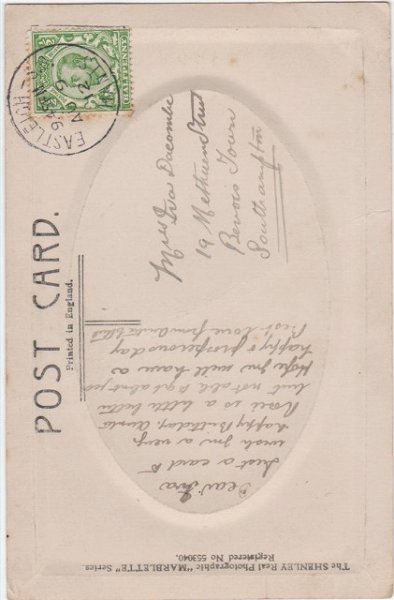 POST CARD.
Printed in England.
EASTLEIGH
HALFPENNY
Miss Iva Dacombe
19 Methuen Street
Bevois Town
Southampton
Dear Iva
Just a card to
wish you a very
happy Birthday, Auntie
Rosei is a little better
but not able to get about yet
Hope you will have a
happy & prosperous day
Best love from Auntie
The SHENLEY Real Photographic "MARBLETTE" Series
Registered No 553040.